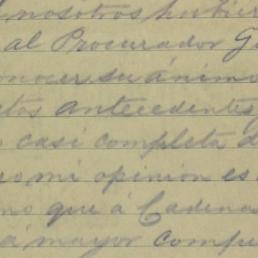 nosotros hubier
al Procurador Ge
onocer su ánimo
stos antecedentes
casi completa d
ro mi opinion es
mo que á Cadena
á mayor compe